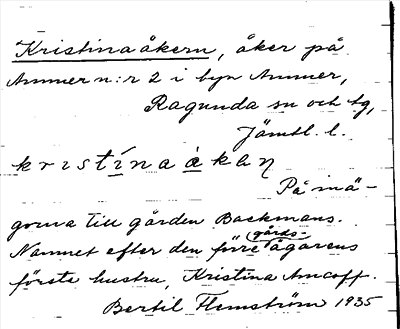 Kristinaåkern, åker på
Ammer n:r 2 i byn Ammer,
Ragunda sn och tg,
Jämtl. l.
kristína àkan
På mä-
gorna till gården Backmans.
Namnet efter den förre gårds-ägarens
förste hustru, Kristina Amcoff.
Bertil Flemström 1935